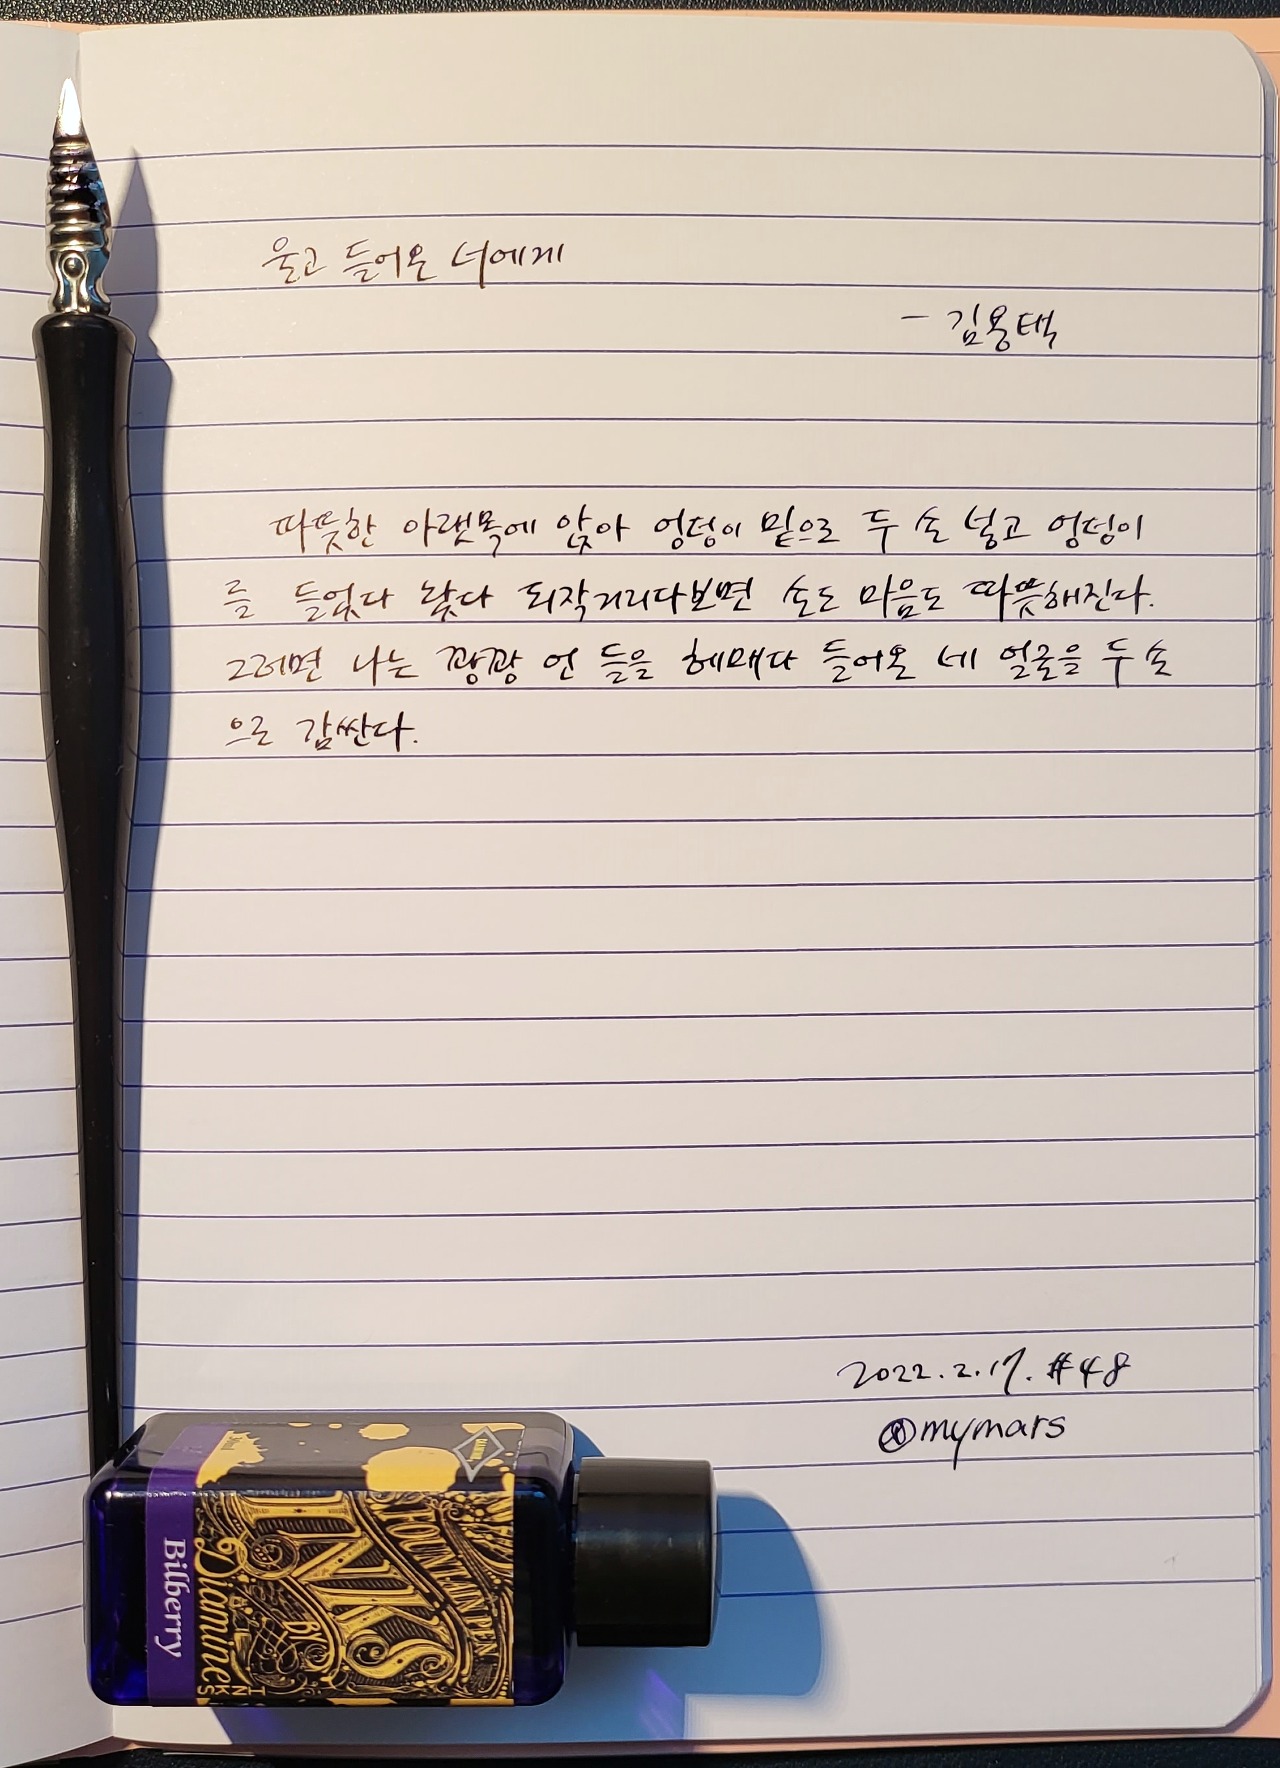 울고 들어온 너에게
- 김용택
따뜻한 아랫목에 앉아 엉덩이 밑으로 두 손 넣고 엉덩이
를 들었다 놨다 되작거리다보면 손도 마음도 따뜻해진다.
그러면 나는 꽝꽝 언 들을 헤매다 들어온 네 얼굴을 두 손
으로 감싼다.
2022.2.17. #48
@mymars
Bilberry
Diamine
INKS
FOUNTAIN PEN
INKS